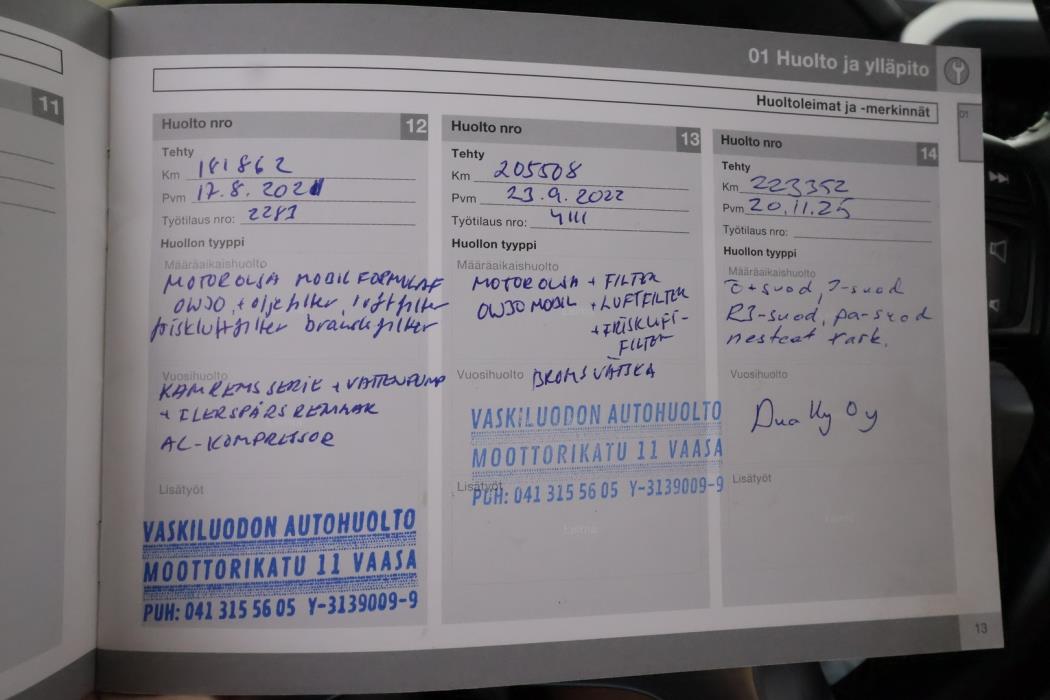 01 Huolto ja ylläpito
Huoltoleimat ja -merkinnät
01
11
Huolto nro 12
Tehty
Km 181862
Pvm 17.8.2021
Työtilaus nro: 2281
Huollon tyyppi
Määräaikaishuolto
MOTOROLJA MOBIL FORMULAF
0W30 + oljefilter, luftfilter
friskluftfilter bränslefilter
Vuosihuolto
KAMREMS SERIE + VATTENPUMP
+ FLERSPÅRS REMMAR
AC-KOMPRESSOR
Lisätyöt
VASKILUODON AUTOHUOLTO
MOOTTORIKATU 11 VAASA
PUH: 041 315 56 05 Y-3139009-9
Huolto nro 13
Tehty
Km 205508
Pvm 23.9.2022
Työtilaus nro: 4111
Huollon tyyppi
Määräaikaishuolto
MOTOROLJA + FILTER
0W30 MOBIL + LUFTFILTER
+ FRISKLUFT-
FILTER
Vuosihuolto BROMSVÄTSKA
VASKILUODON AUTOHUOLTO
MOOTTORIKATU 11 VAASA
Lisätyöt
PUH: 041 315 56 05 Y-3139009-9
Huolto nro 14
Tehty
Km 223352
Pvm 20.11.25
Työtilaus nro:
Huollon tyyppi
Määräaikaishuolto
Ö+suod, I-suod
RI-suod, pa-suod
nesteet tark.
Vuosihuolto
Oy
Lisätyöt
13